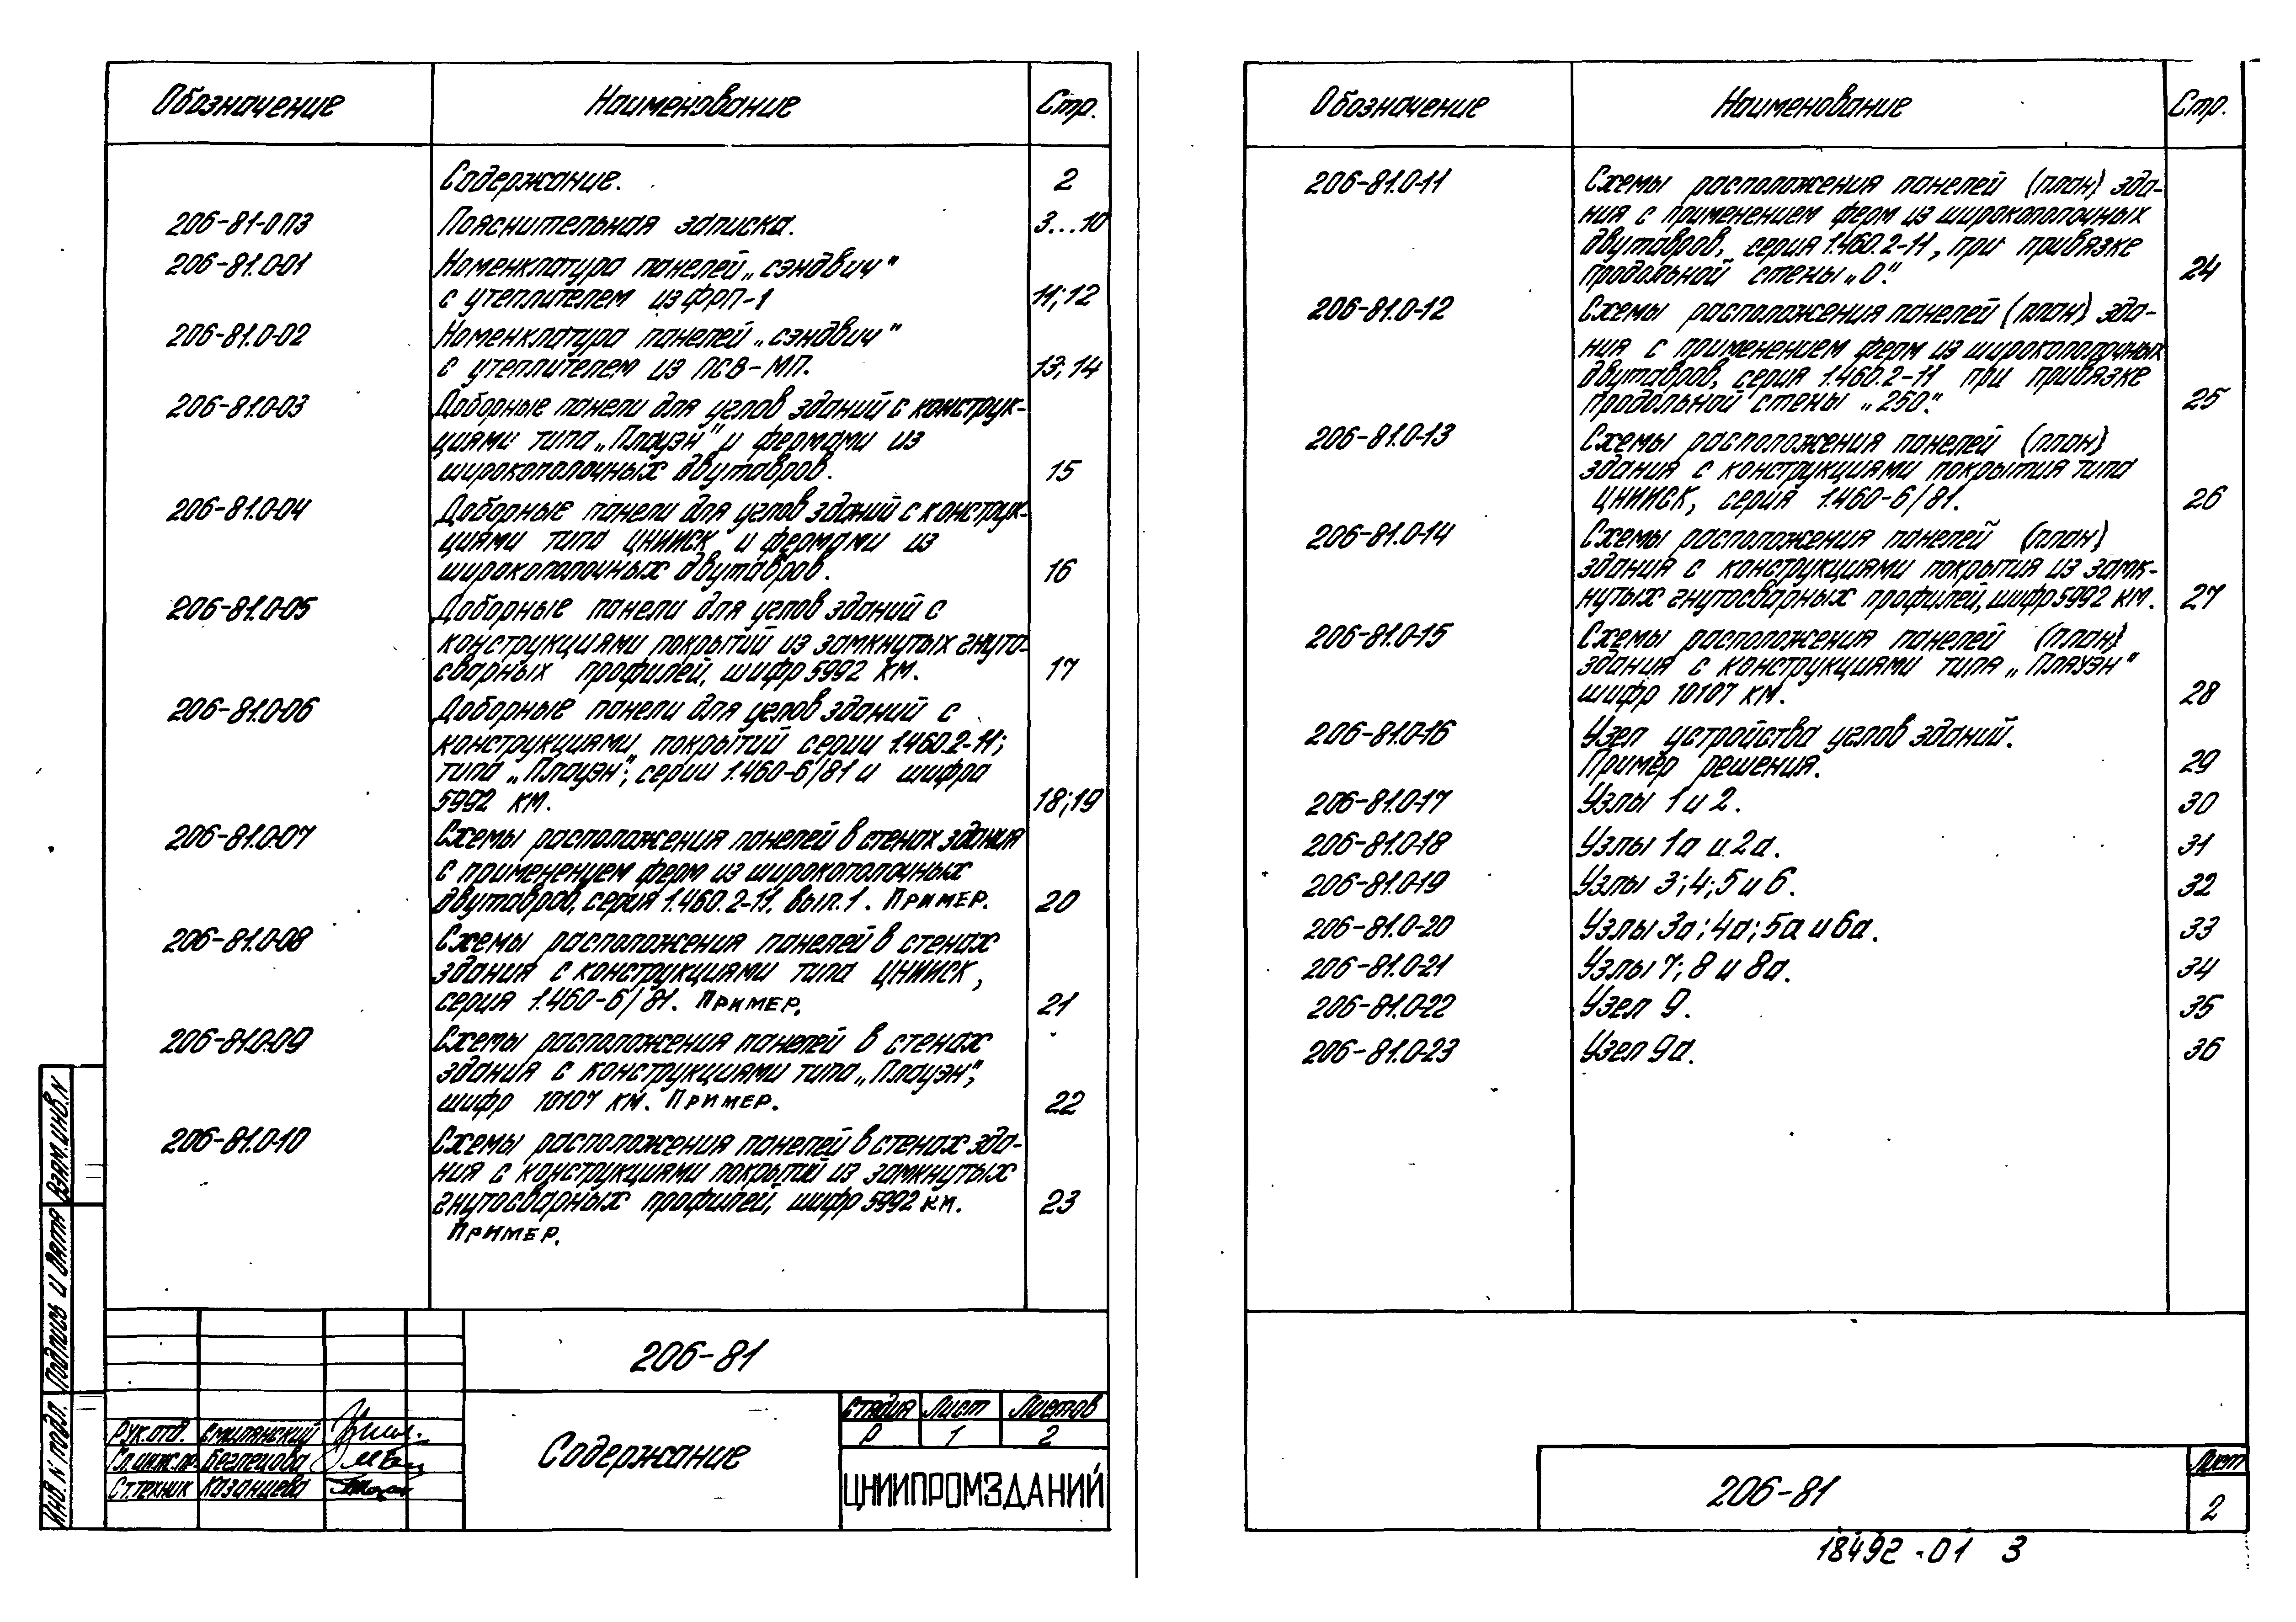 Обозначение Наименование Стр.
Содержание. 2
206-81-0ПЗ Пояснительная записка. 3...10
206-81.0-01 Номенклатура панелей „сэндвич"
с утеплителем из ФРП-1 11;12
206-81.0-02 Номенклатура панелей „сэндвич"
с утеплителем из ПСВ-МП. 13;14
206-81.0-03 Доборные панели для углов зданий с конструк-
циями типа „Плауэн" и фермами из
широкополочных двутавров. 15
206-81.0-04 Доборные панели для углов зданий с конструк-
циями типа ЦНИИСК и фермами из
широкополочных двутавров. 16
206-81.0-05 Доборные панели для углов зданий с
конструкциями покрытий из замкнутых гнуто-
сварных профилей, шифр 5992 КМ. 17
206-81.0-06 Доборные панели для углов зданий с
конструкциями покрытий серии 1.460.2-11;
типа „Плауэн"; серии 1.460-6/81 и шифра
5992 КМ. 18;19
206-81.0-07 Схемы расположения панелей в стенах здания
с применением ферм из широкополочных
двутавров, серия 1.460.2-11. вып.1. Пример. 20
206-81.0-08 Схемы расположения панелей в стенах
здания с конструкциями типа ЦНИИСК,
серия 1.460-6/81. Пример. 21
206-81.0-09 Схемы расположения панелей в стенах
здания с конструкциями типа „Плауэн",
шифр 10107 КМ. Пример. 22
206-81.0-10 Схемы расположения панелей в стенах зда-
ния с конструкциями покрытий из замкнутых
гнутосварных профилей, шифр 5992 КМ. 23
Пример.
206-81
Стадия Лист Листов
Р 1 2
Содержание
ЦНИИПРОМЗДАНИЙ
Рук.отд. Смилянский
Гл.инж.пр. Беглецова
Ст.техник Казанцева
Взам.инв.N
Подпись и дата
Инв.N подл.
Обозначение Наименование Стр.
206-81.0-11 Схемы расположения панелей (план) зда-
ния с применением ферм из широкополочных
двутавров, серия 1.460.2-11, при привязке
продольной стены „0". 24
206-81.0-12 Схемы расположения панелей (план) зда-
ния с применением ферм из широкополочных
двутавров, серия 1.460.2-11 при привязке
продольной стены „250". 25
206-81.0-13 Схемы расположения панелей (план)
здания с конструкциями покрытия типа
ЦНИИСК, серия 1.460-6/81. 26
206-81.0-14 Схемы расположения панелей (план)
здания с конструкциями покрытия из замк-
нутых гнутосварных профилей, шифр 5992 КМ. 27
206-81.0-15 Схемы расположения панелей (план)
здания с конструкциями типа „Плауэн"
шифр 10107 КМ. 28
206-81.0-16 Узел устройства углов зданий.
Пример решения. 29
206-81.0-17 Узлы 1 и 2. 30
206-81.0-18 Узлы 1а и 2а. 31
206-81.0-19 Узлы 3;4;5 и 6. 32
206-81.0-20 Узлы 3а;4а;5а и 6а. 33
206-81.0-21 Узлы 7;8 и 8а. 34
206-81.0-22 Узел 9. 35
206-81.0-23 Узел 9а. 36
206-81
Лист
2
18492-01 3